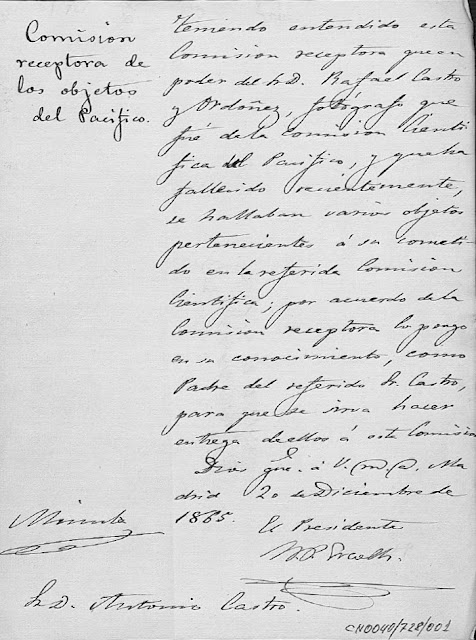 Comision
receptora de
los objetos
del Pacifico.
teniendo entendido esta
Comision receptora que en
poder del Sr D. Rafael Castro
y Ordoñez, fotógrafo que
fué de la Comision Cienti-
fica del Pacifico, y que ha
fallecido recientemente,
se hallaban varios objetos
pertenecientes á su cometi-
do en la referida Comision
Cientifica; por acuerdo de la
Comision receptora lo pongo
en su conocimiento, como
Padre del referido Sr. Castro,
para que se sirva hacer
entrega de ellos á esta Comision
Dios gue. á V. m. a. Ma
drid 20 de Diciembre de
1865.
El Presidente
Minuta
Sr D. Antonio Castro.
CN0040/728/001